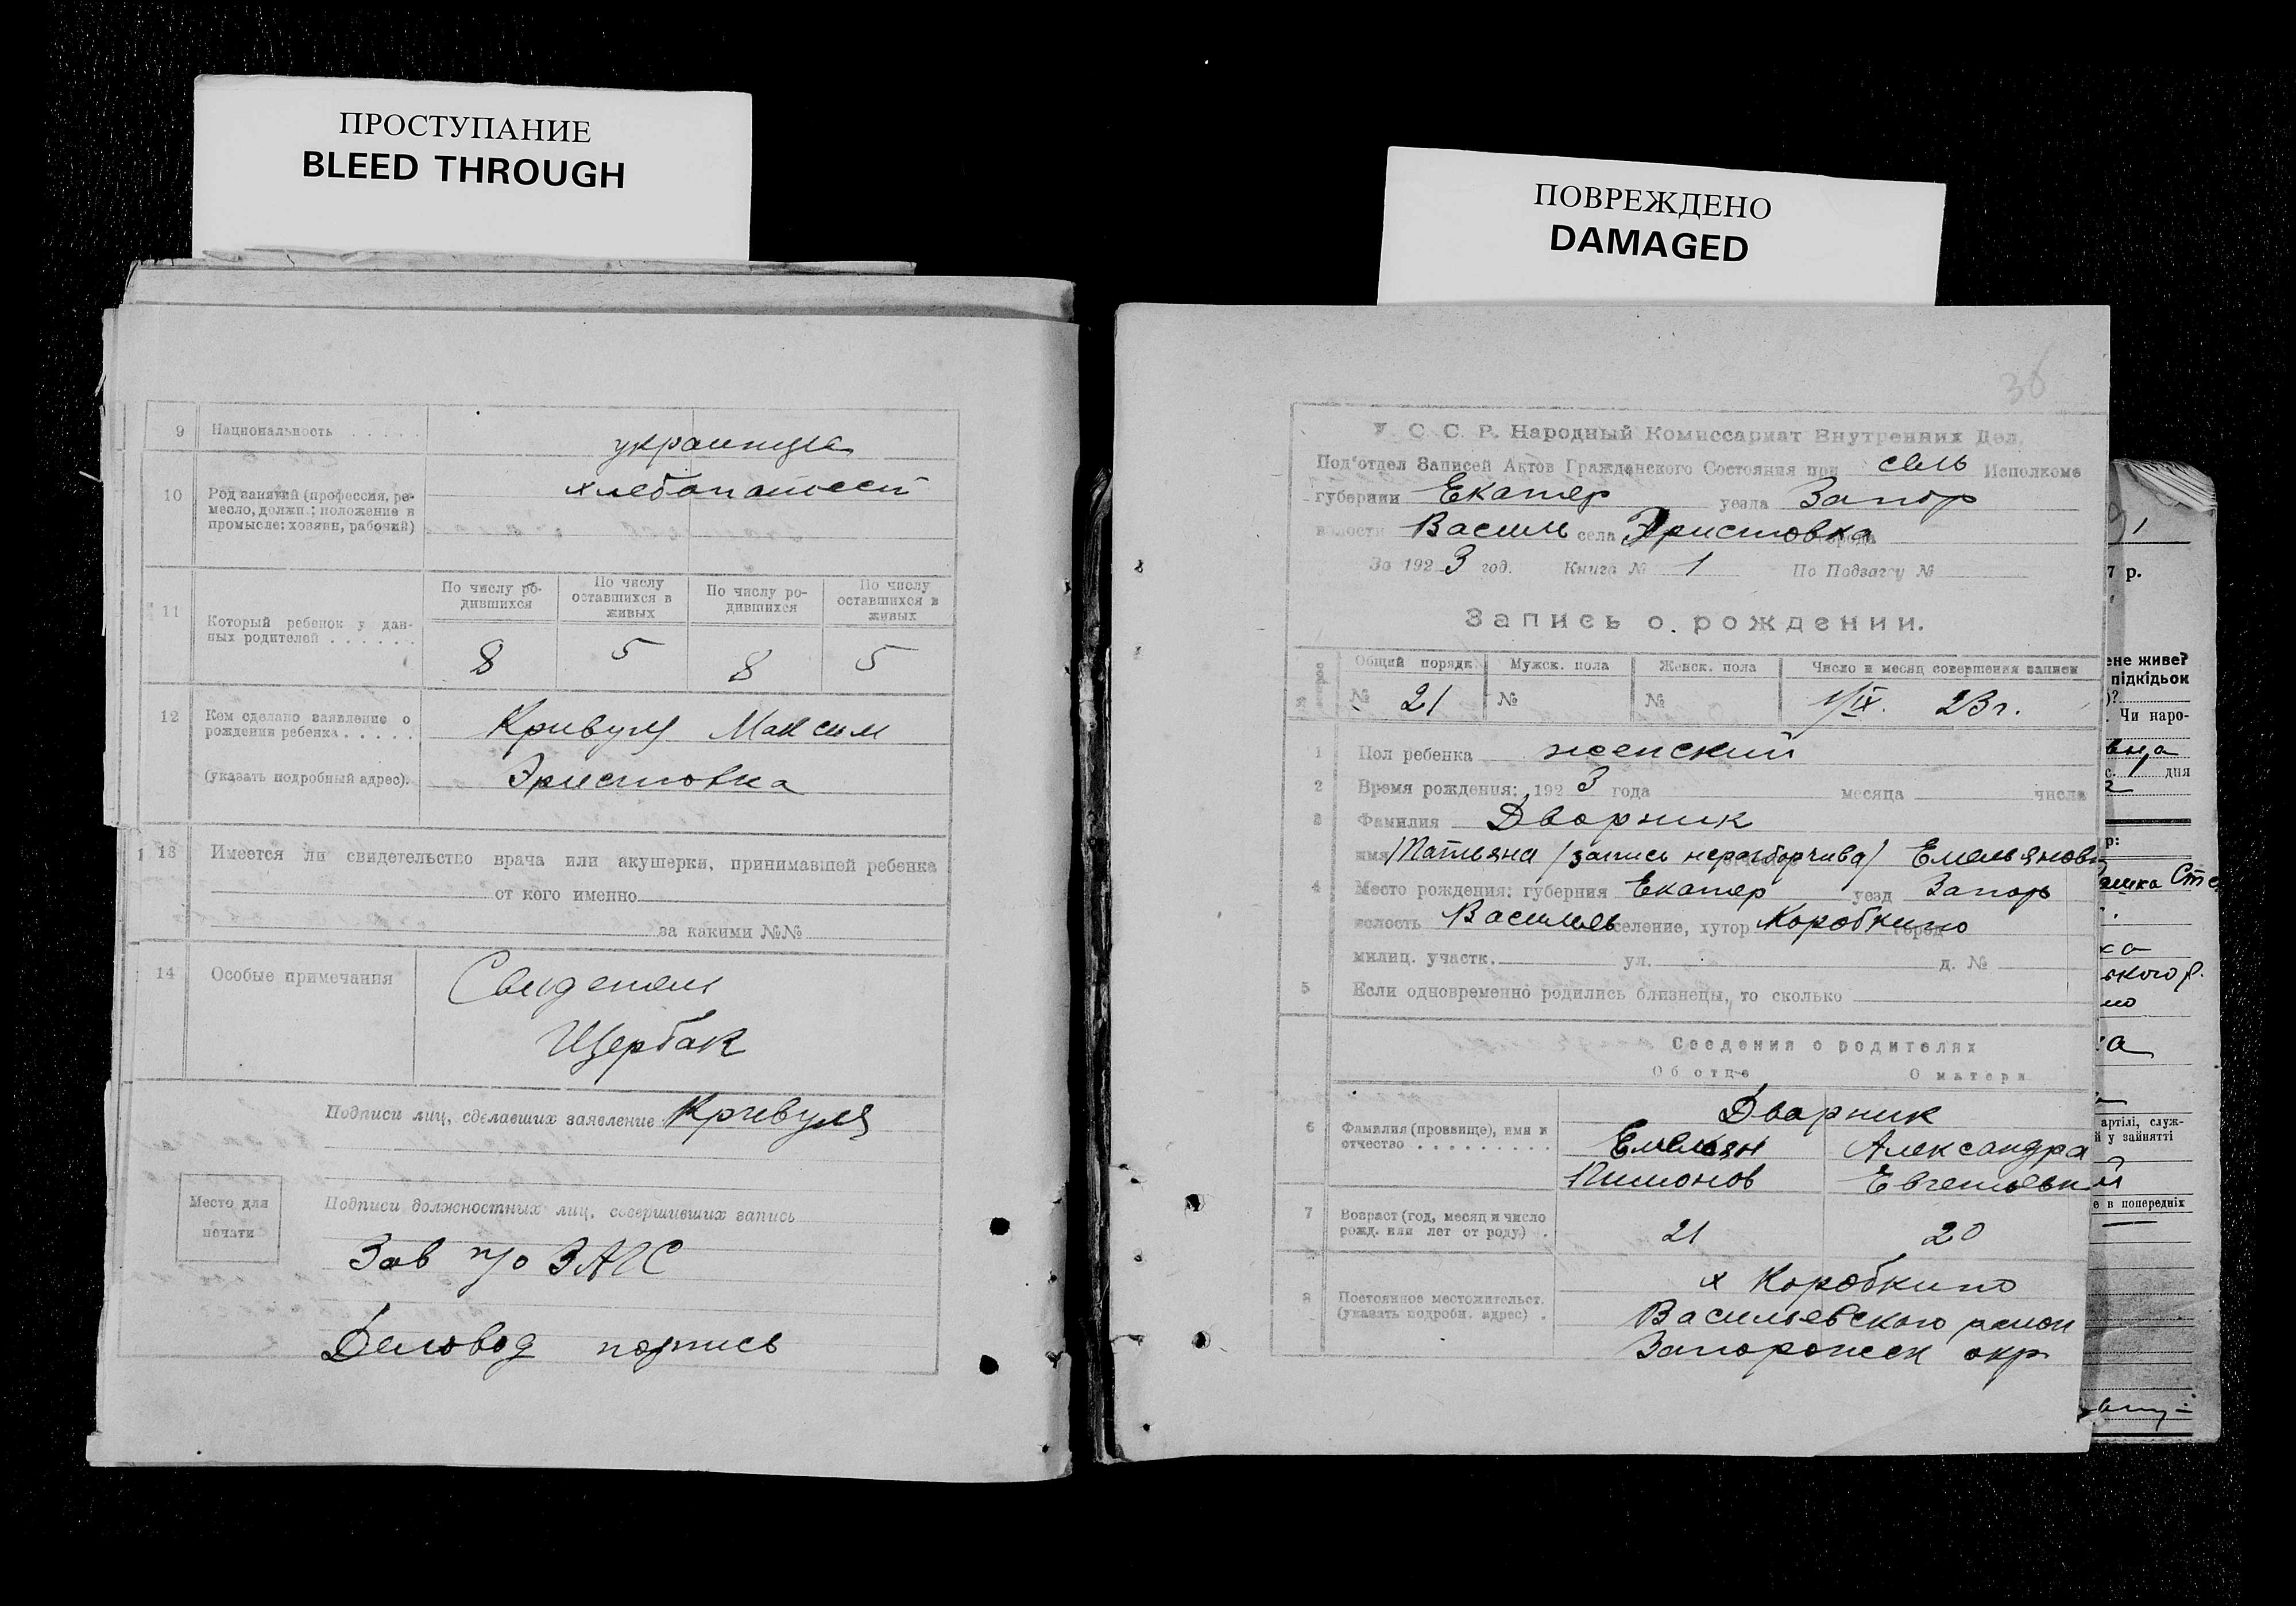 ПРОСТУПАНИЕ
BLEED THROUGH
9 Национальность
украинцы
10 Род занятий (профессия, ре-
месло, должн.; положение в
промысле: хозяин, рабочий)
хлебопашест
11 Который ребенок у дан-
ных родителей
По числу ро-
дившихся
По числу
оставшихся в
живых
По числу ро-
дившихся
По числу
оставшихся в
живых
8 5 8 5
12 Кем сделано заявление о
рождении ребенка
Кривуля Максим
(указать подробный адрес).
Эристовка
13 Имеется ли свидетельство врача или акушерки, принимавшей ребенка
от кого именно
за какими №№
14 Особые примечания
Свидетели
Щербак
Подписи лиц, сделавших заявление Кривуля
Место для
печати
Подписи должностных лиц, совершивших запись
Зав п/о ЗАГС
Деловод подпись
ПОВРЕЖДЕНО
DAMAGED
36
У. С. С. Р. Народный Комиссариат Внутренних Дел.
Под'отдел Записей Актов Гражданского Состояния при сель Исполкоме
губернии Екатер уезда Запор
волости Василь села Эристовка города
За 1923 год. Книга № 1 По Подзагсу №
Запись о рождении.
Общий порядк Мужск. пола Женск. пола Число и месяц совершения записи
№ 21 № № 1/IX. 23 г.
1 Пол ребенка женский
2 Время рождения: 1923 года месяца числа
3 Фамилия Дворник
имя Татьяна /запись неразборчива/ Емельянов
4 Место рождения: губерния Екатер уезд Запорь
волость Василь селение, хутор Коробкино город
милиц. участк. ул. д. №
5 Если одновременно родились близнецы, то сколько
Сведения о родителях
Об отце О матери
6 Фамилия (прозвище), имя и
отчество
Дворник
Емельян Александра
Пимонов Евгеньевн
7 Возраст (год, месяц и число
рожд. или лет от роду)
21 20
8 Постоянное местожительст.
(указать подробн. адрес)
х Коробкино
Васильевского район
Запорожск окр
7 р.
ене живет
підкідьок
)?
. Чи наро-
вна
с. 1 дня
р:
ського р.
артілі, служ-
й у зайнятті
е в попередніх